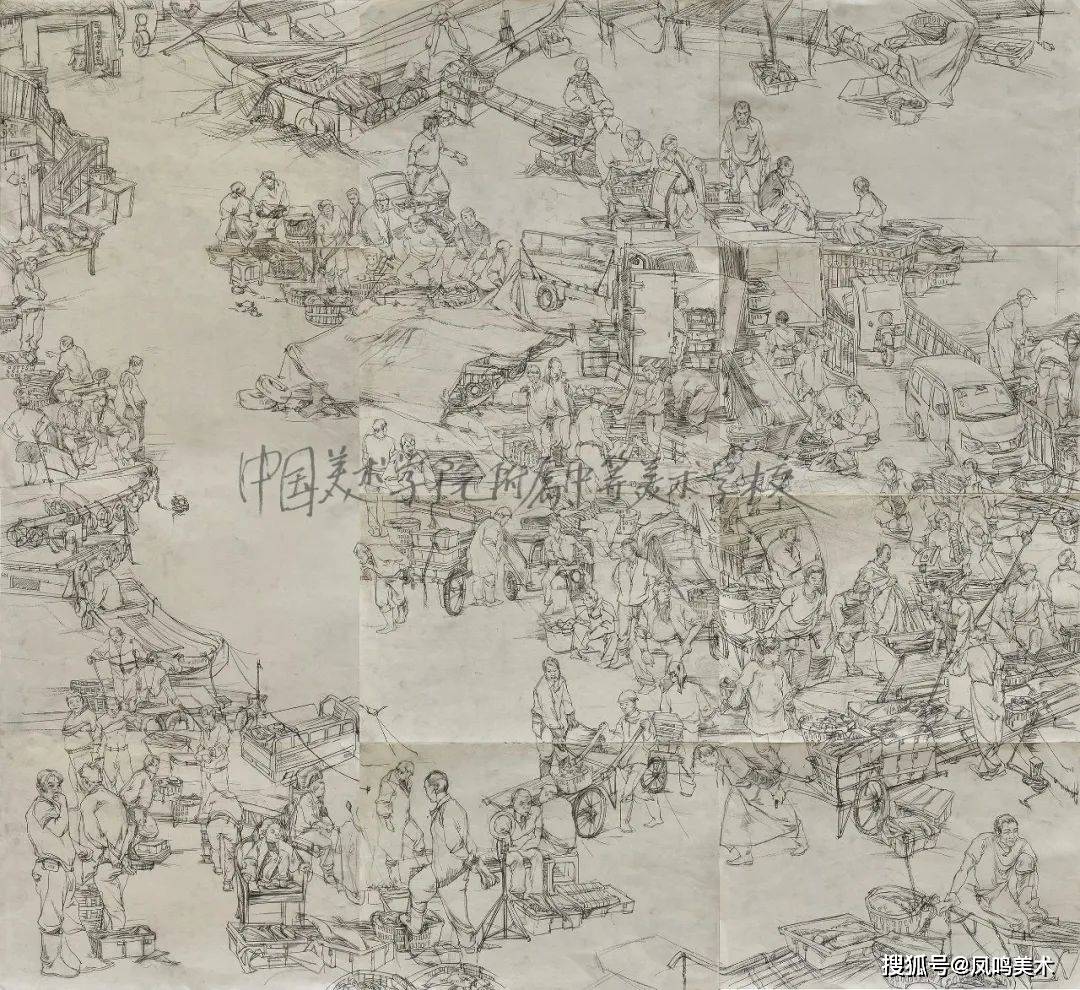 中国美术学院附属中等美术学校
搜狐号@凤鸣美术